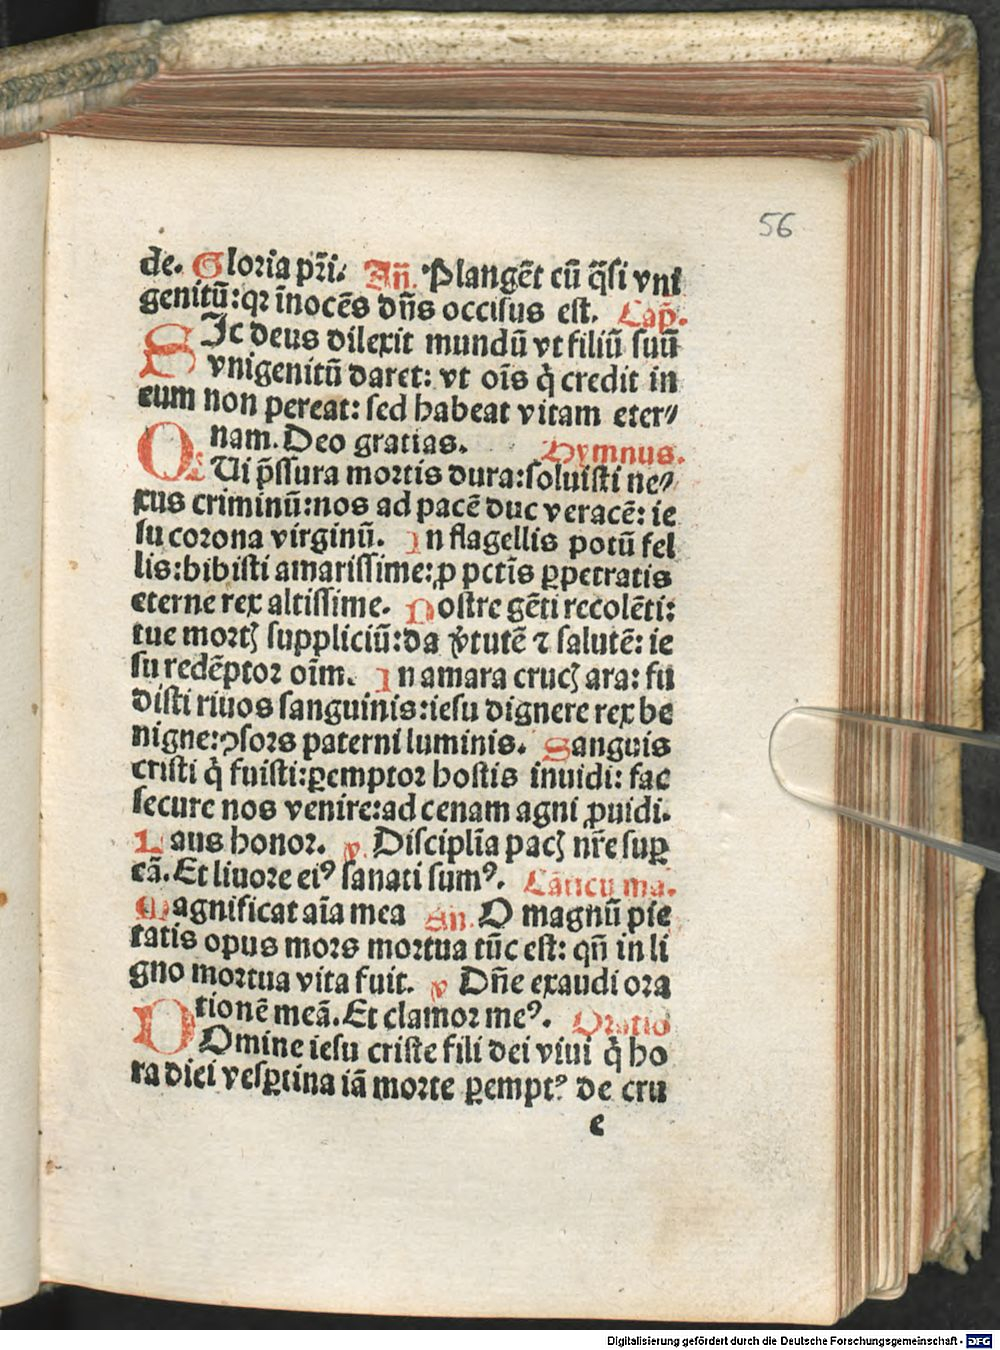 56
de. Gloria pr̄i. An̄. Plangēt cū q̄si vni
genitū: qꝛ īnocēs dn̄s occisus est. Cap̄.
SIc deus dilexit mundū vt filiū suū
vnigenitū daret: vt oīs q̇ credit in
eum non pereat: sed habeat vitam eter⸗
nam. Deo gratias. Hymnus.
QUi p̄ssura mortis dura: soluisti ne⸗
xus criminū: nos ad pacē duc veracē: ie
su corona virginū. In flagellis potū fel
lis: bibisti amarissime: ꝓ pctīs ꝑpetratis
eterne rex altissime. Nostre gēti recolēti:
tue mortꝭ suppliciū: da v̄tutē ⁊ salutē: ie
su redēptor oīm. In amara crucꝭ ara: fu
disti riuos sanguinis: iesu dignere rex be
nigne: ꝯsors paterni luminis. Sanguis
cristi q̇ fuisti: ꝑemptor hostis inuidi: fac
secure nos venire: ad cenam agni ꝓuidi.
Laus honor. v. Disciplīa pacꝭ nr̄e suꝑ
eā. Et liuore eiꝰ sanati sumꝰ. Cāticū ma.
Magnificat aīa mea An̄. O magnū pie
tatis opus mors mortua tūc est: qn̄ in li
gno mortua vita fuit. v Dn̄e exaudi ora
tionē meā. Et clamor meꝰ. Oratio
DOmine iesu criste fili dei viui q̇ ho
ra diei vesꝑtina iā morte ꝑemptꝰ de cru
e
Digitalisierung gefördert durch die Deutsche Forschungsgemeinschaft - DFG